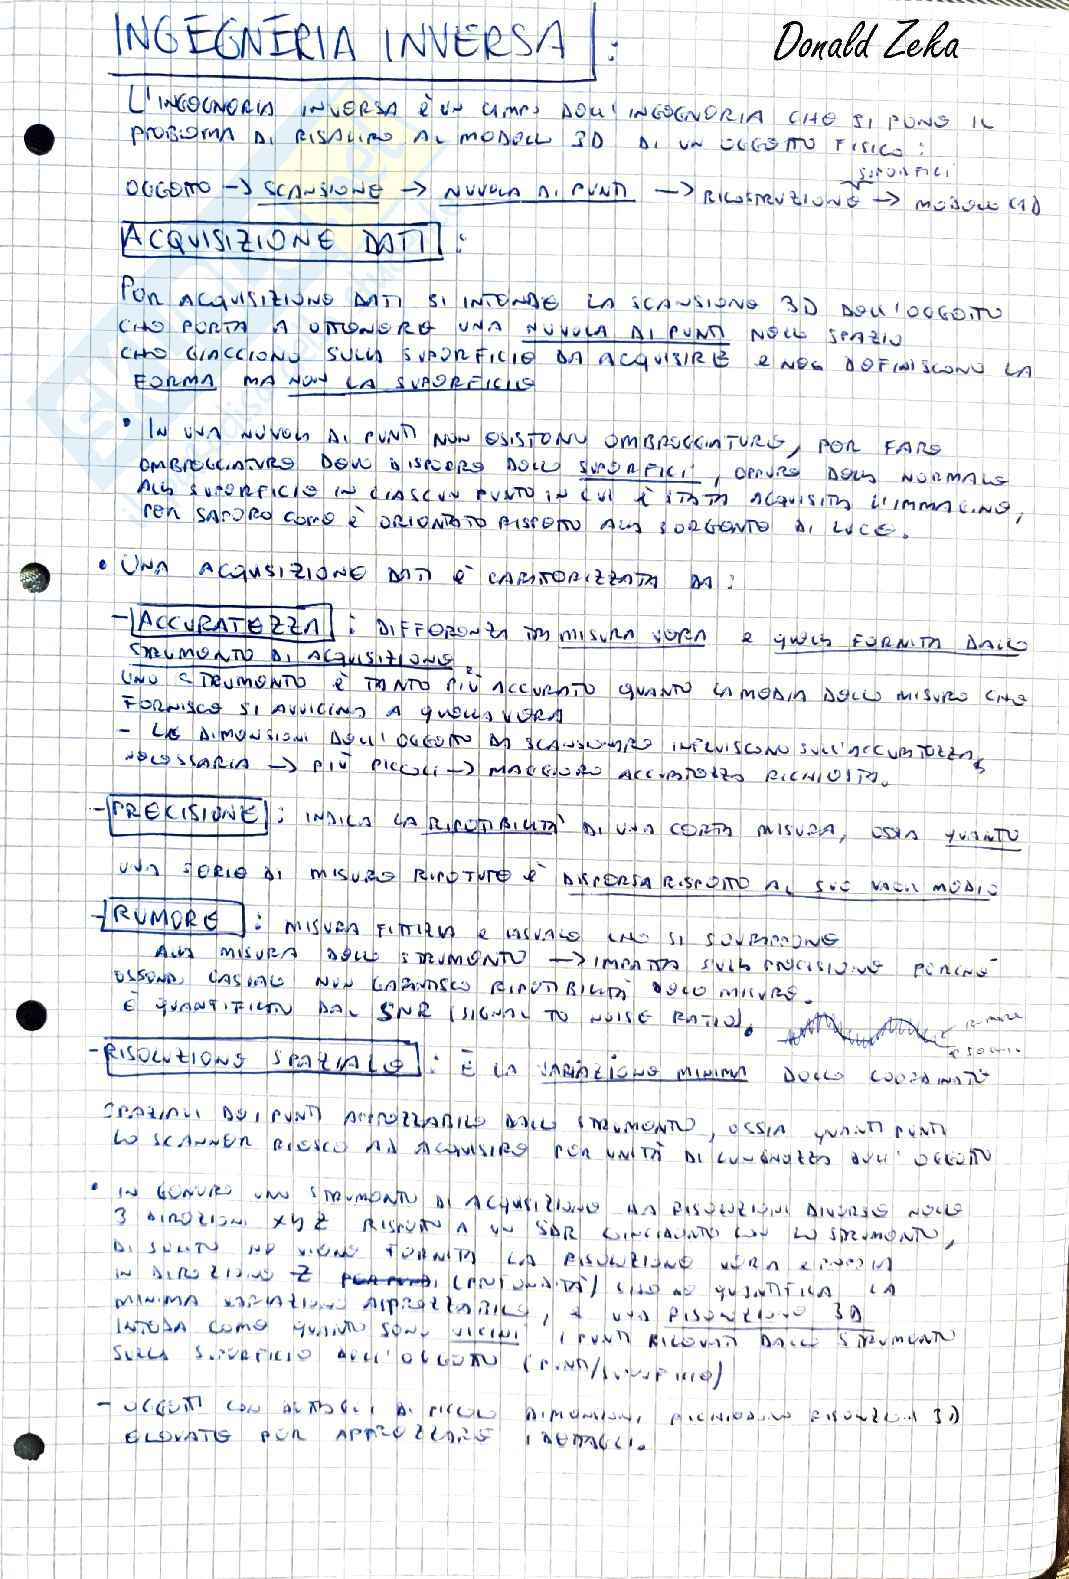 INGEGNERIA INVERSA :
Donald Zeka
L'INGEGNERIA INVERSA È UN CAMPO DELL'INGEGNERIA CHE SI PONE IL
PROBLEMA DI RISALIRE AL MODELLO 3D DI UN OGGETTO FISICO:
SUPERFICI
OGGETTO → SCANSIONE → NUVOLA DI PUNTI → RICOSTRUZIONE → MODELLO CAD
ACQUISIZIONE DATI :
PER ACQUISIZIONE DATI SI INTENDE LA SCANSIONE 3D DELL'OGGETTO
CHE PORTA A OTTENERE UNA NUVOLA DI PUNTI NELLO SPAZIO
CHE GIACCIONO SULLA SUPERFICIE DA ACQUISIRE E NE DEFINISCONO LA
FORMA MA NON LA SUPERFICIE
• IN UNA NUVOLA DI PUNTI NON ESISTONO OMBREGGIATURE, PER FARE
OMBREGGIATURE DEVO DISPORRE DELLE SUPERFICI, OPPURE DELLA NORMALE
ALLA SUPERFICIE IN CIASCUN PUNTO IN CUI È STATA ACQUISITA L'IMMAGINE,
PER SAPERE COME È ORIENTATO RISPETTO ALLA SORGENTE DI LUCE.
• UNA ACQUISIZIONE DATI È CARATTERIZZATA DA:
- ACCURATEZZA : DIFFERENZA TRA MISURA VERA E QUELLA FORNITA DALLO
STRUMENTO DI ACQUISIZIONE
UNO STRUMENTO È TANTO PIÙ ACCURATO QUANTO LA MEDIA DELLE MISURE CHE
FORNISCE SI AVVICINA A QUELLA VERA
- LE DIMENSIONI DELL'OGGETTO DA SCANSIONARE INFLUISCONO SULL'ACCURATEZZA
NECESSARIA → PIÙ PICCOLI → MAGGIORE ACCURATEZZA RICHIESTA.
- PRECISIONE : INDICA LA RIPETIBILITÀ DI UNA CERTA MISURA, OSSIA QUANTO
UNA SERIE DI MISURE RIPETUTE È DISPERSA RISPETTO AL SUO VALOR MEDIO
- RUMORE : MISURA FITTIZIA E CASUALE CHE SI SOVRAPPONE
ALLA MISURA DELLO STRUMENTO → IMPATTA SULLA PRECISIONE PERCHÉ
ESSENDO CASUALE NON GARANTISCE RIPETIBILITÀ DELLE MISURE.
È QUANTIFICATO DAL SNR (SIGNAL TO NOISE RATIO).
RUMORE
SEGNALE
- RISOLUZIONE SPAZIALE : È LA VARIAZIONE MINIMA DELLE COORDINATE
SPAZIALI DEI PUNTI APPREZZABILE DALLO STRUMENTO, OSSIA QUANTI PUNTI
LO SCANNER RIESCE AD ACQUISIRE PER UNITÀ DI LUNGHEZZA DELL'OGGETTO
• IN GENERE UNO STRUMENTO DI ACQUISIZIONE HA RISOLUZIONI DIVERSE NELLE
3 DIREZIONI XYZ RISPETTO A UN SDR COINCIDENTE CON LO STRUMENTO,
DI SOLITO NE VIENE FORNITA LA RISOLUZIONE VERA E PROPRIA
IN DIREZIONE Z (PROFONDITÀ) CHE NE QUANTIFICA LA
MINIMA VARIAZIONE APPREZZABILE, E UNA RISOLUZIONE 3D
INTESA COME QUANTO SONO VICINI I PUNTI RILEVATI DALLO STRUMENTO
SULLA SUPERFICIE DELL'OGGETTO (PUNTI/SUPERFICIE)
- OGGETTI CON DETTAGLI DI PICCOLE DIMENSIONI RICHIEDONO RISOLUZIONI 3D
ELEVATE PER APPREZZARE I DETTAGLI.